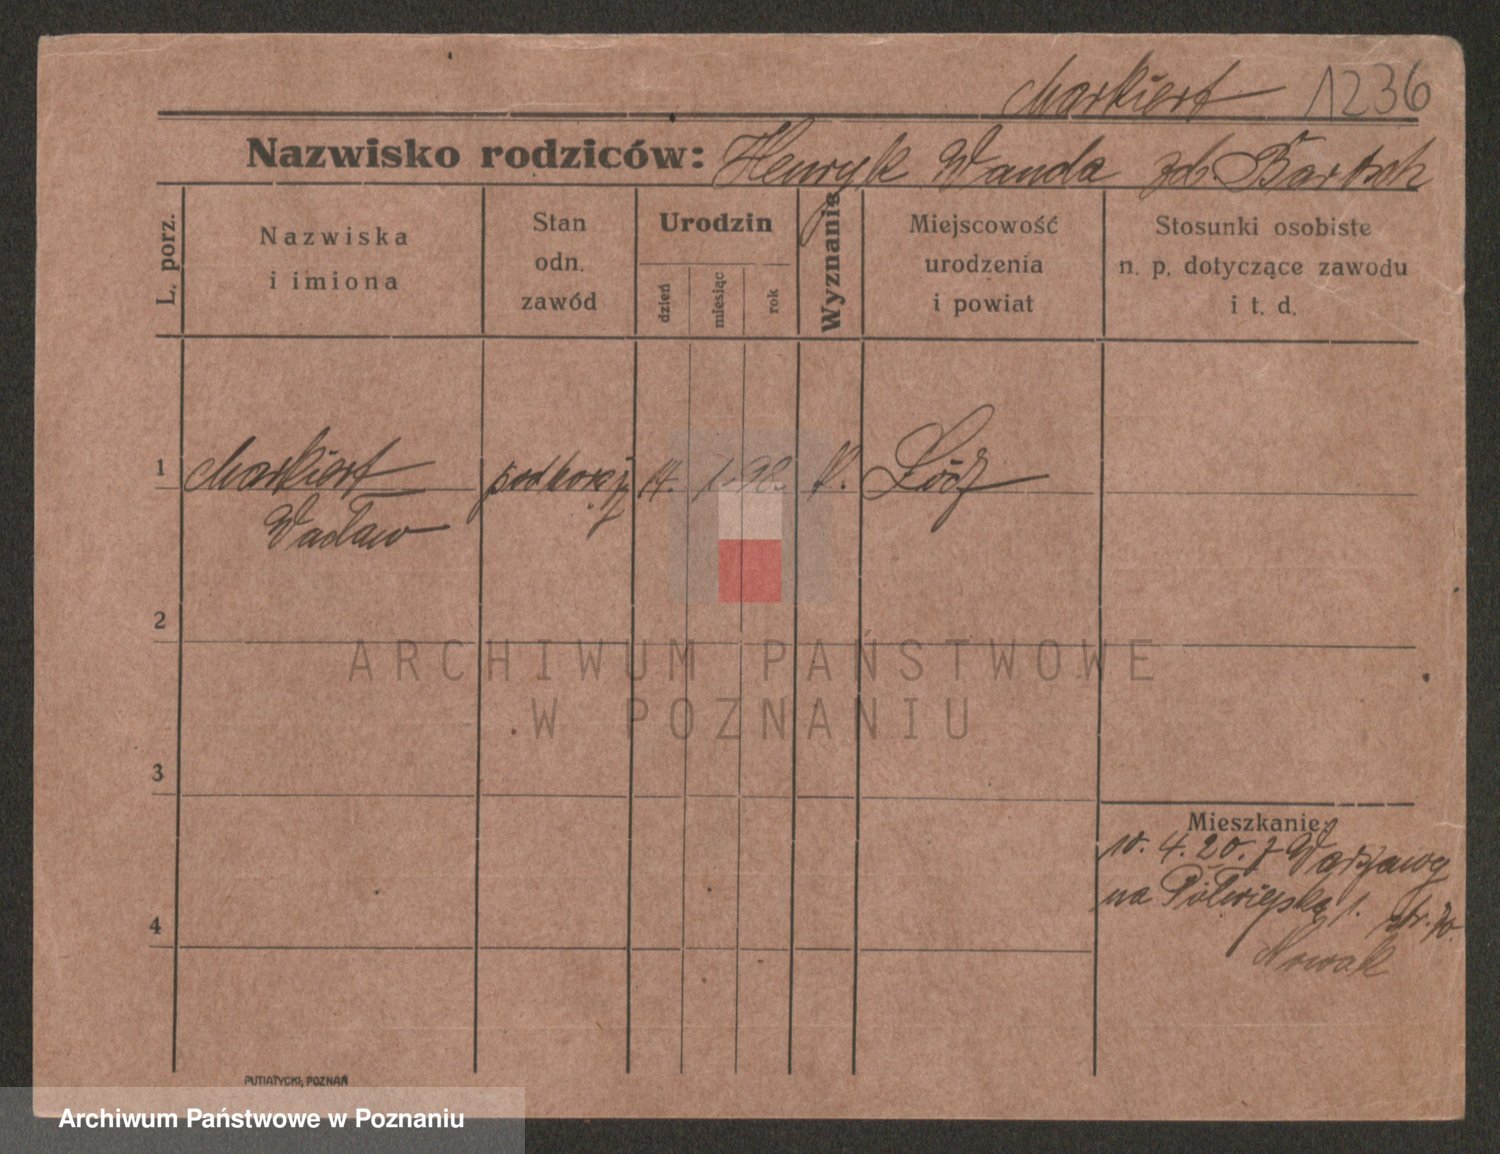 Markiert 1236
Nazwisko rodziców: Henryk Wanda zd Bartsch
L. porz.
Nazwiska
i imiona
Stan
odn.
zawód
Urodzin
dzień
miesiąc
rok
Wyznanie
Miejscowość
urodzenia
i powiat
Stosunki osobiste
n. p. dotyczące zawodu
i t. d.
1 Markiert podchorąż 14. 98. Łódź
Wacław
2
ARCHIWUM PAŃSTWOWE
W POZNANIU
3
Mieszkanie:
10. 4. 20. z Warszawy
na Półwiejską 1.
4
Nowak
PUTIATYCKI, POZNAŃ
Archiwum Państwowe w Poznaniu